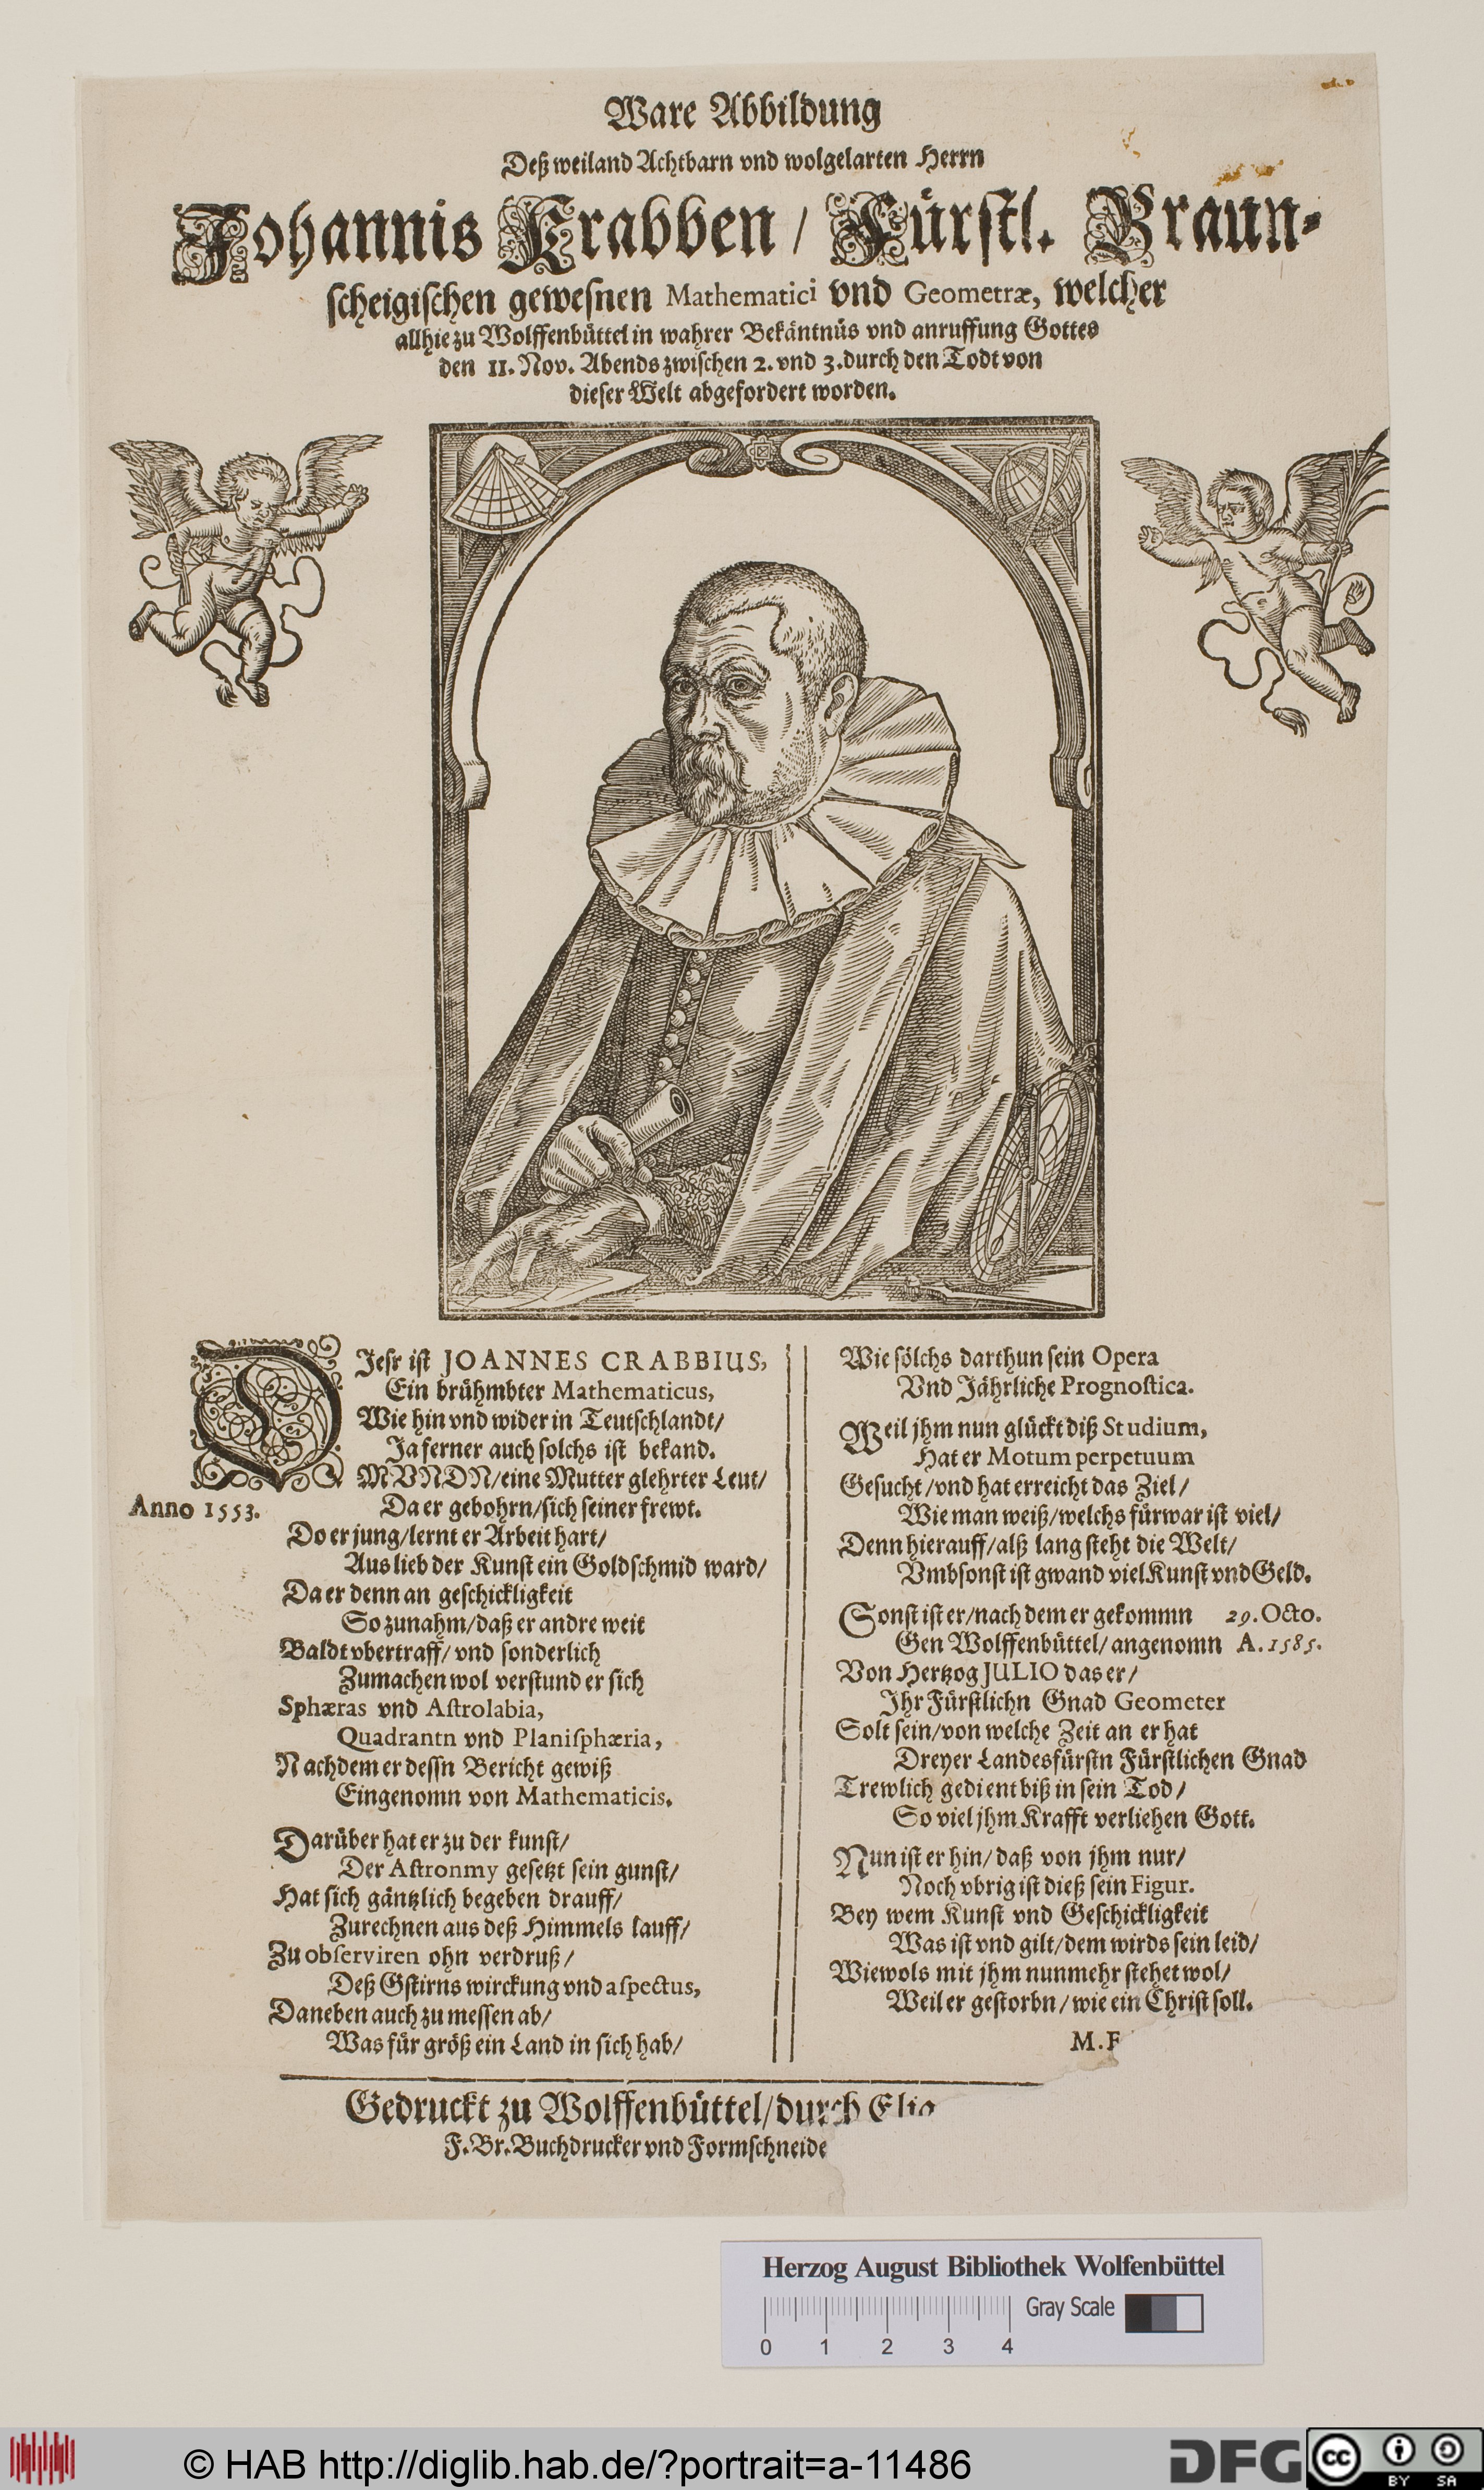 Ware Abbildung
Deß weiland Achtbarn vnd wolgelarten Herrn
Johannis Krabben / Fürstl. Braun-
scheigischen gewesnen Mathematici vnd Geometræ, welcher
allhie zu Wolffenbüttel in wahrer Bekäntnüs vnd anruffung Gottes
den 11. Nov. Abends zwischen 2. vnd 3. durch den Todt von
dieser Welt abgefordert worden.
DJesr ist JOANNES CRABBIUS,
Ein brühmbter Mathematicus,
Wie hin vnd wider in Teutschlandt/
Ja ferner auch solchs ist bekand.
MVNDN/eine Mutter glehrter Leut/
Anno 1553. Da er gebohrn/sich seiner frewt.
Do er jung/lernt er Arbeit hart/
Aus lieb der Kunst ein Goldschmid ward/
Da er denn an geschickligkeit
So zunahm/daß er andre weit
Baldt vbertraff/vnd sonderlich
Zumachen wol verstund er sich
Sphæras vnd Astrolabia,
Quadrantn vnd Planisphæria,
Nachdem er dessn Bericht gewiß
Eingenomn von Mathematicis.
Darüber hat er zu der kunst/
Der Astronmy gesetzt sein gunst/
Hat sich gäntzlich begeben drauff/
Zurechnen aus deß Himmels lauff/
Zu observiren ohn verdruß/
Deß Gstirns wirckung vnd aspectus,
Daneben auch zu messen ab/
Was für größ ein Land in sich hab/
Wie sölchs darthun sein Opera
Vnd Jährliche Prognostica.
Weil jhm nun glückt diß Studium,
Hat er Motum perpetuum
Gesucht/vnd hat erreicht das Ziel/
Wie man weiß/welchs fürwar ist viel/
Denn hierauff/alß lang steht die Welt/
Vmbsonst ist gwand viel Kunst vnd Geld.
Sonst ist er/nach dem er gekommn 29. Octo.
Gen Wolffenbüttel/angenomn A. 1585.
Von Hertzog JULIO das er/
Jhr Fürstlichn Gnad Geometer
Solt sein/von welche Zeit an er hat
Dreyer Landesfürstn Fürstlichen Gnad
Trewlich gedient biß in sein Tod/
So viel jhm Krafft verliehen Gott.
Nun ist er hin/daß von jhm nur/
Noch vbrig ist dieß sein Figur.
Bey wem Kunst vnd Geschickligkeit
Was ist vnd gilt/dem wirds sein leid/
Wiewols mit jhm nunmehr stehet wol/
Weil er gestorbn/wie ein Christ soll.
M. F
Gedruckt zu Wolffenbüttel/durch Elia
F. Br. Buchdrucker vnd Formschneide
Herzog August Bibliothek Wolfenbüttel
Gray Scale
0 1 2 3 4
© HAB http://diglib.hab.de/?portrait=a-11486
DFG
cc BY SA